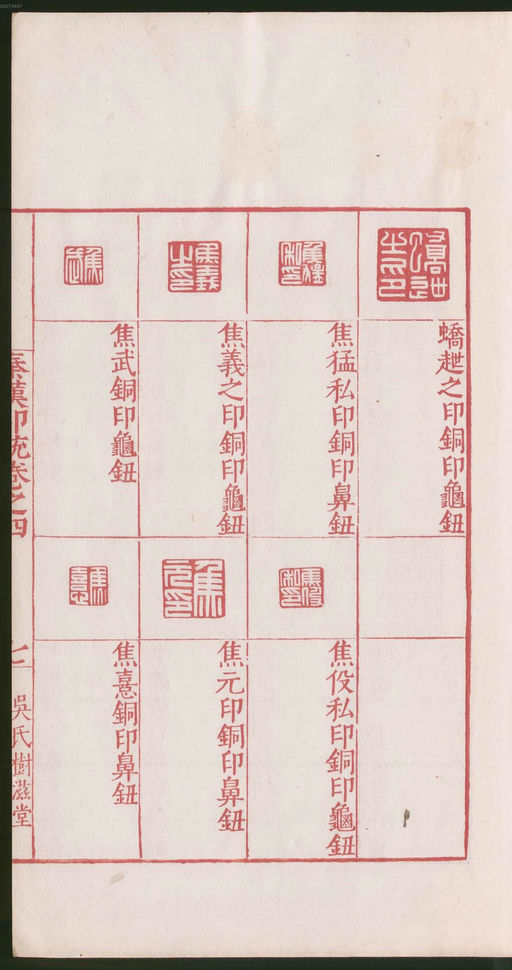 蟜𧻓之印銅印龜鈕
焦猛私印銅印鼻鈕
焦義之印銅印龜鈕
焦武銅印龜鈕
焦伇私印銅印龜鈕
焦元印銅印鼻鈕
焦憙銅印鼻鈕
秦漢印統卷之四
七
吳氏樹滋堂
00073447